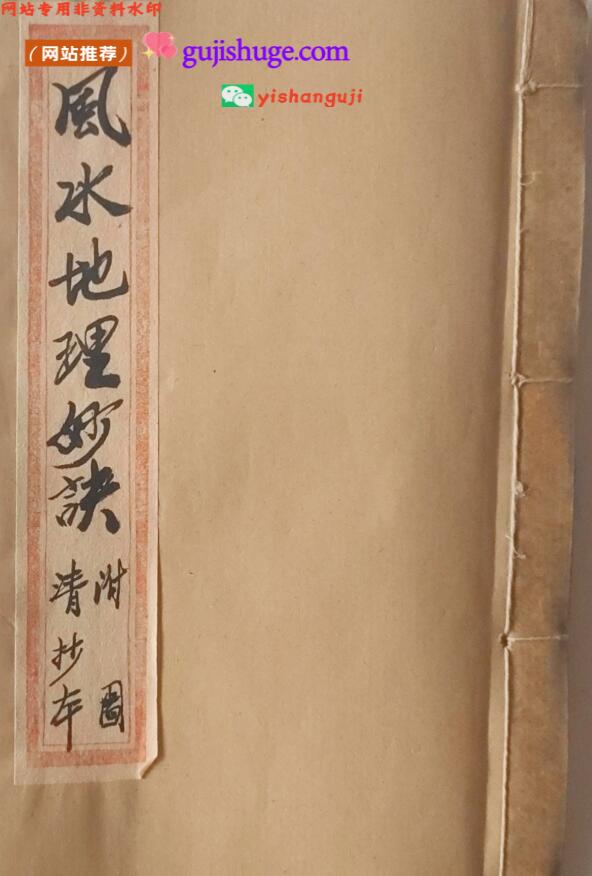 网站专用非资料水印
（网站推荐）
gujishuge.com
yishanguji
風水地理妙訣
附圖
清抄本